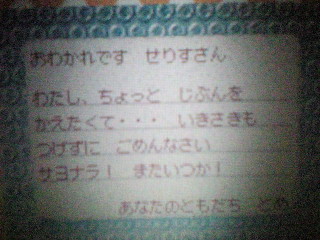 おわかれです　せりすさん
わたし、ちょっと　じぶんを
かえたくて・・・　いきさきも
つげずに　ごめんなさい
サヨナラ！　またいつか！
あなたのともだち　とめ